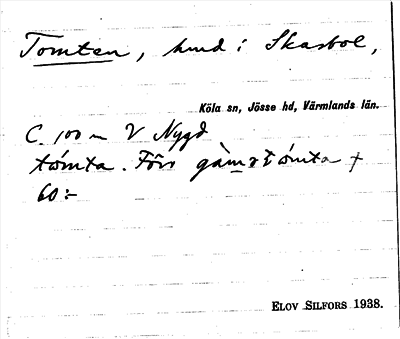 Tomten, hmd i Skasbol,
Köla sn, Jösse hd, Värmlands län.
C. 100 m V Nygd
tómta. Förr
60:-
ELOV SILFORS 1938.